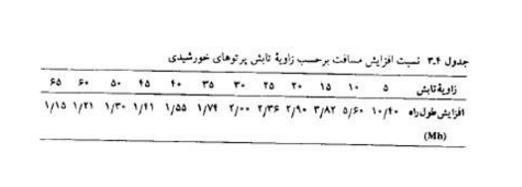 جدول ۳.۴ نسبت افزایش مسافت برحسب زاویهٔ تابش پرتوهای خورشیدی
زاویهٔ تابش ۵ ۱۰ ۱۵ ۲۰ ۲۵ ۳۰ ۳۵ ۴۰ ۴۵ ۵۰ ۶۰ ۶۵
افزایش طول راه ۱۰/۴۰ ۵/۶۰ ۳/۸۲ ۲/۹۰ ۲/۳۶ ۲/۰۰ ۱/۷۴ ۱/۵۵ ۱/۴۱ ۱/۳۰ ۱/۲۱ ۱/۱۵
(Mh)